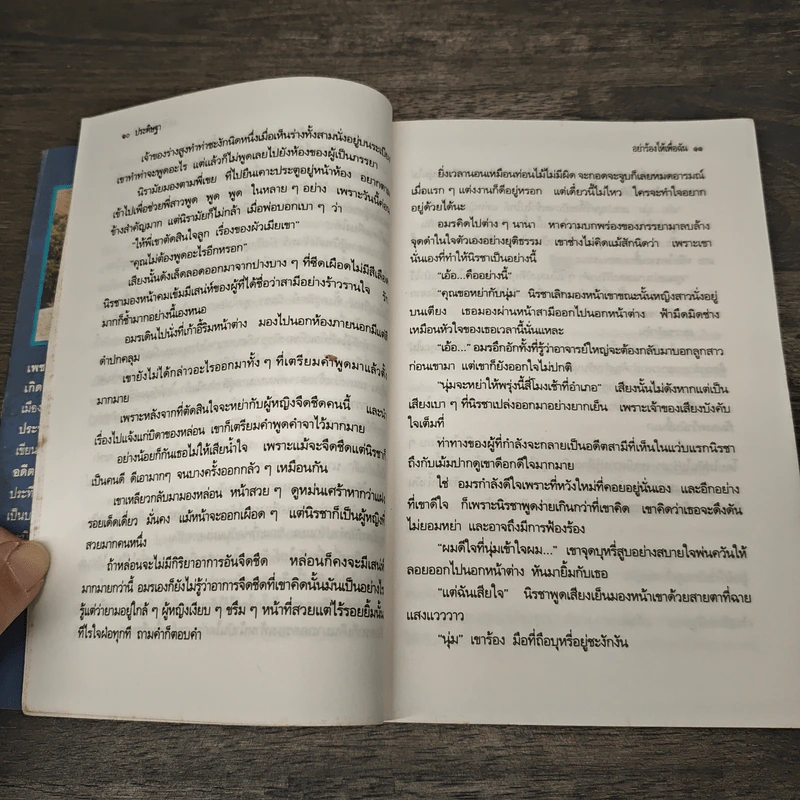 ๑๐ ประดิษฐา
เจ้าของร่างสูงทำท่าชะงักนิดหนึ่งเมื่อเห็นร่างทั้งสามนั่งอยู่บนระเบียง
เขาทำท่าจะพูดอะไร แต่แล้วก็ไม่พูดเลยไปยังห้องของผู้เป็นภรรยา
นิรามัยมองตามพี่เขย ที่ไปยืนเคาะประตูอยู่หน้าห้อง อยากตาม
เข้าไปเพื่อช่วยพี่สาวพูด พูด พูด ในหลาย ๆ อย่าง เพราะวันนี้
ข้างสำคัญมาก แต่นิรามัยก็ไม่กล้า เมื่อพ่อบอกเบา ๆ ว่า
"ให้พี่เขาตัดสินใจลูก เรื่องของผัวเมียเขา"
"คุณไม่ต้องพูดอะไรอีกหรอก"
เสียงนั้นดังเล็ดลอดออกมาจากปางบาง ๆ ที่ซีดเผือดไม่มีสีเลือด
นิรชามองหน้าคมเข้มมีเสน่ห์ของผู้ที่ได้ชื่อว่าสามีอย่างร้าวรานใจ รัก
มากก็ช้ำมากอย่างนี้เองหนอ
อมรเดินไปนั่งที่เก้าอี้ริมหน้าต่าง มองไปนอกห้องภายนอกมีแต่สี
ดำปกคลุม
เขายังไม่ได้กล่าวอะไรออกมาทั้ง ๆ ที่เตรียมคำพูดมาแล้วตั้ง
มากมาย
เพราะหลังจากที่ตัดสินใจจะหย่ากับผู้หญิงจืดชืดคนนี้ และนำ
เรื่องไปแจ้งแก่บิดาของหล่อน เขาก็เตรียมคำพูดคำจาไว้มากมาย
อย่างน้อยก็กันเธอไม่ให้เสียน้ำใจ เพราะแม้จะจืดชืดแต่นิรชาก็
เป็นคนดี ดีเอามากๆ จนบางครั้งออกกลัว ๆ เหมือนกัน
เขาเหลียวกลับมามองหล่อน หน้าสวย ๆ ดูหม่นเศร้าหากว่าแฝง
รอยเด็ดเดี่ยว มั่นคง แม้หน้าจะออกเผือด ๆ แต่นิรชาก็เป็นผู้หญิงที่
สวยมากคนหนึ่ง
ถ้าหล่อนจะไม่มีกิริยาอาการอันจืดชืด หล่อนก็คงจะมีเสน่ห์
มากมายกว่านี้ อมรเองก็ยังไม่รู้ว่าอาการจืดชืดที่เขาคิดนั้นมันเป็นอย่างไร
รู้แต่ว่ายามอยู่ใกล้ ๆ ผู้หญิงเงียบ ๆ ขรึม ๆ หน้าที่สวยแต่ไร้รอยยิ้มนั้น
ทีไรใจฝ่อทุกที ถามคำก็ตอบคำ
อย่าร้องไห้เพื่อฉัน ๑๑
ยิ่งเวลานอนเหมือนท่อนไม้ไม่มีผิด จะกอดจะจูบก็เลยหมดอารมณ์
เมื่อแรก ๆ แต่งงานก็ดีอยู่หรอก แต่เดี๋ยวนี้ไม่ไหว ใครจะทำใจอยาก
อยู่ด้วยได้นะ
อมรคิดไปต่าง ๆ นานา หาความบกพร่องของภรรยามาลบล้าง
จุดดำในใจตัวเองอย่างยุติธรรม เขาช่างไม่คิดแม้สักนิดว่า เพราะเขา
นั่นเองที่ทำให้นิรชาเป็นอย่างนี้
"เอ้อ...คืออย่างนี้"
"คุณขอหย่ากับนุ่ม" นิรชาเลิกมองหน้าเขาขณะนั้นหญิงสาวนั่งอยู่
บนเตียง เธอมองผ่านหน้าสามีออกไปนอกหน้าต่าง ฟ้ามืดมิดช่าง
เหมือนหัวใจของเธอเวลานี้นั่นแหละ
"เอ้อ..." อมรอึกอักทั้งที่รู้ว่าอาจารย์ใหญ่จะต้องกลับมาบอกลูกสาว
ก่อนเขามา แต่เขาก็ยังออกใจไม่ปกติ
"นุ่มจะหย่าให้พรุ่งนี้สี่โมงเช้าที่อำเภอ" เสียงนั้นไม่ดังหากแต่เป็น
เสียงเบา ๆ ที่นิรชาเปล่งออกมาอย่างยากเย็น เพราะเจ้าของเสียงบังคับ
ใจเต็มที่
ท่าทางของผู้ที่กำลังจะกลายเป็นอดีตสามีที่เห็นในแว่บแรกนิรชา
ถึงกับเม้มปากดูเขาดีอกดีใจมากมาย
ใช่ อมรกำลังดีใจเพราะที่หวังใหม่ที่คอยอยู่นั่นเอง และอีกอย่าง
ที่เขาดีใจ ก็เพราะนิรชาพูดง่ายเกินกว่าที่เขาคิด เขาคิดว่าเธอจะดึงดัน
ไม่ยอมหย่า และอาจถึงมีการฟ้องร้อง
"ผมดีใจที่นุ่มเข้าใจผม..." เขาจุดบุหรี่สูบอย่างสบายใจพ่นควันให้
ลอยออกไปนอกหน้าต่าง หันมายิ้มกับเธอ
"แต่ฉันเสียใจ" นิรชาพูดเสียงเย็นมองหน้าเขาด้วยสายตาที่ฉาย
แสงแวววาว
"นุ่ม" เขาร้อง มือที่ถือบุหรี่อยู่ชะงักงัน
เพช
เกิด
เมือง
ประ
เขียน
อดีต
ประที
เป็นบ